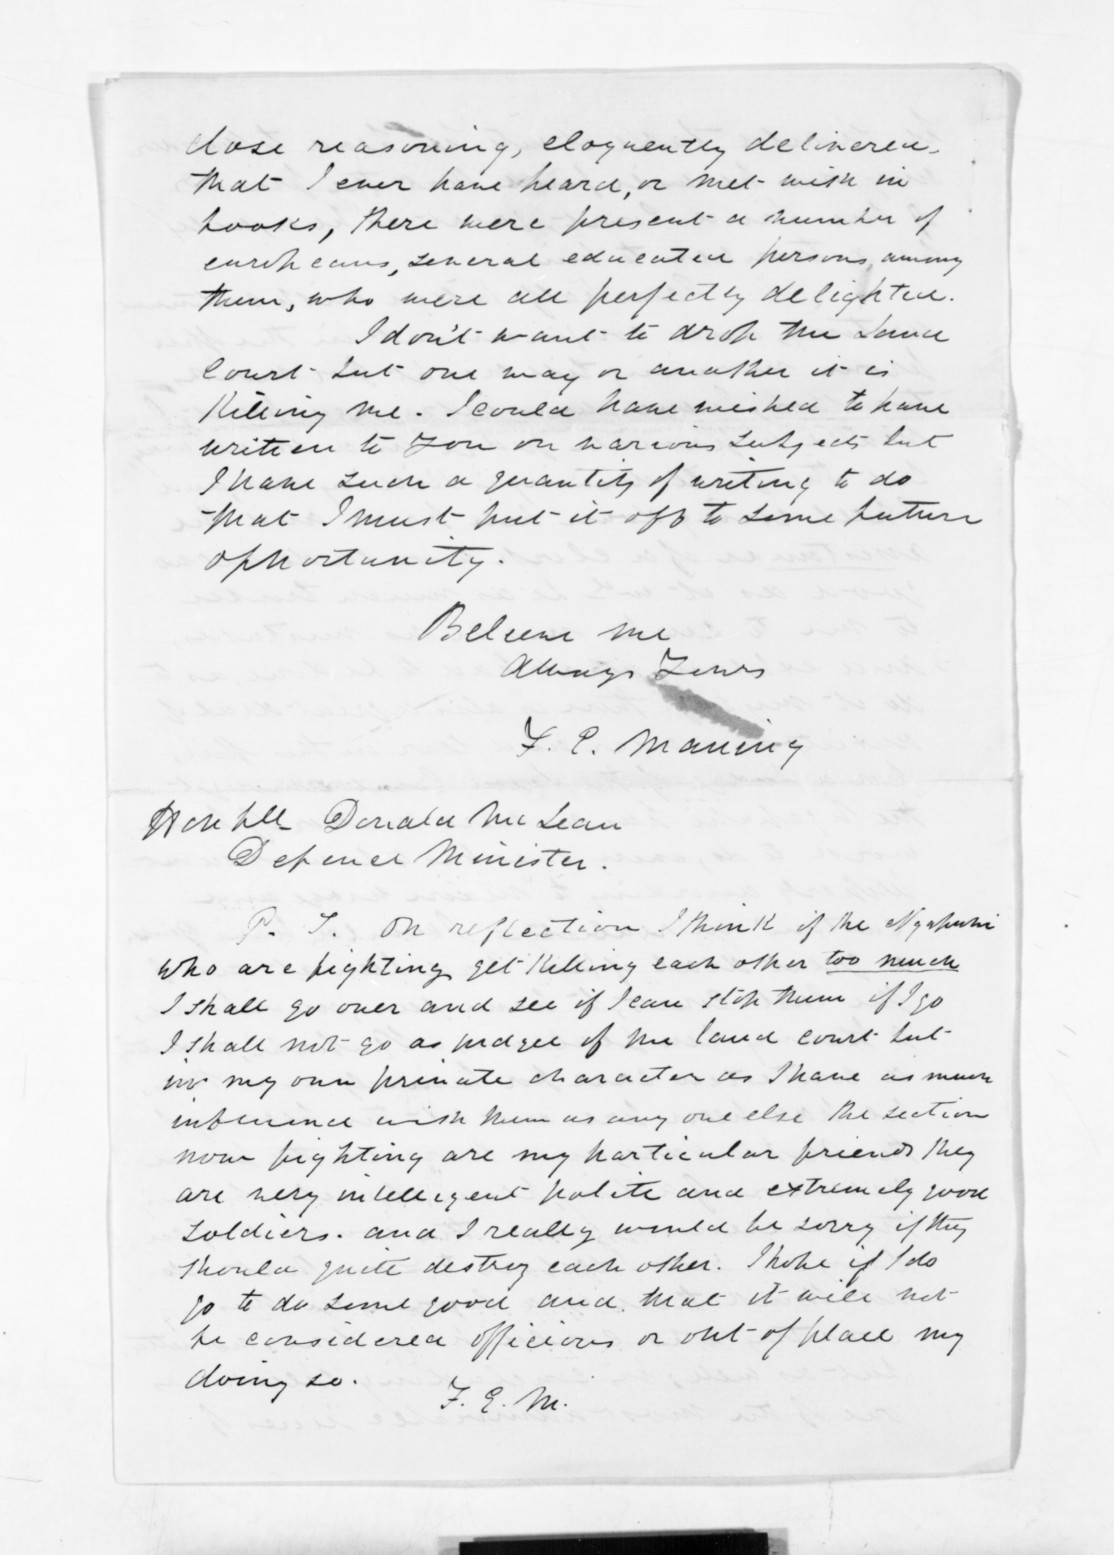 close reasoning, eloquently delivered,
that I ever have heard, or met with in
books, there were present a number of
europeans, several educated persons among
them, who were all perfectly delighted.
I don't want to drop the Land
Court but one way or another it is
Killing me. I could have wished to have
written to You on various subjects but
I have such a quantity of writing to do
that I must put it off to some future
opportunity.
Believe me
Always Yours
F. E. Maning
Honble Donald McLean
Defence Minister.
P. S. On reflection I think if the Ngapuhi
who are fighting get Killing each other too much
I shall go over and see if I can stop them if I go
I shall not go as judge of the land court but
in my own private character as I have as much
influence with them as any one else the section
now fighting are my particular friends they
are very intelligent polite and extremely good
soldiers. and I really would be sorry if they
should quite destroy each other. I hope if I do
go to do some good and that it will not
be considered officious or out of place my
doing so.
F. E. M.